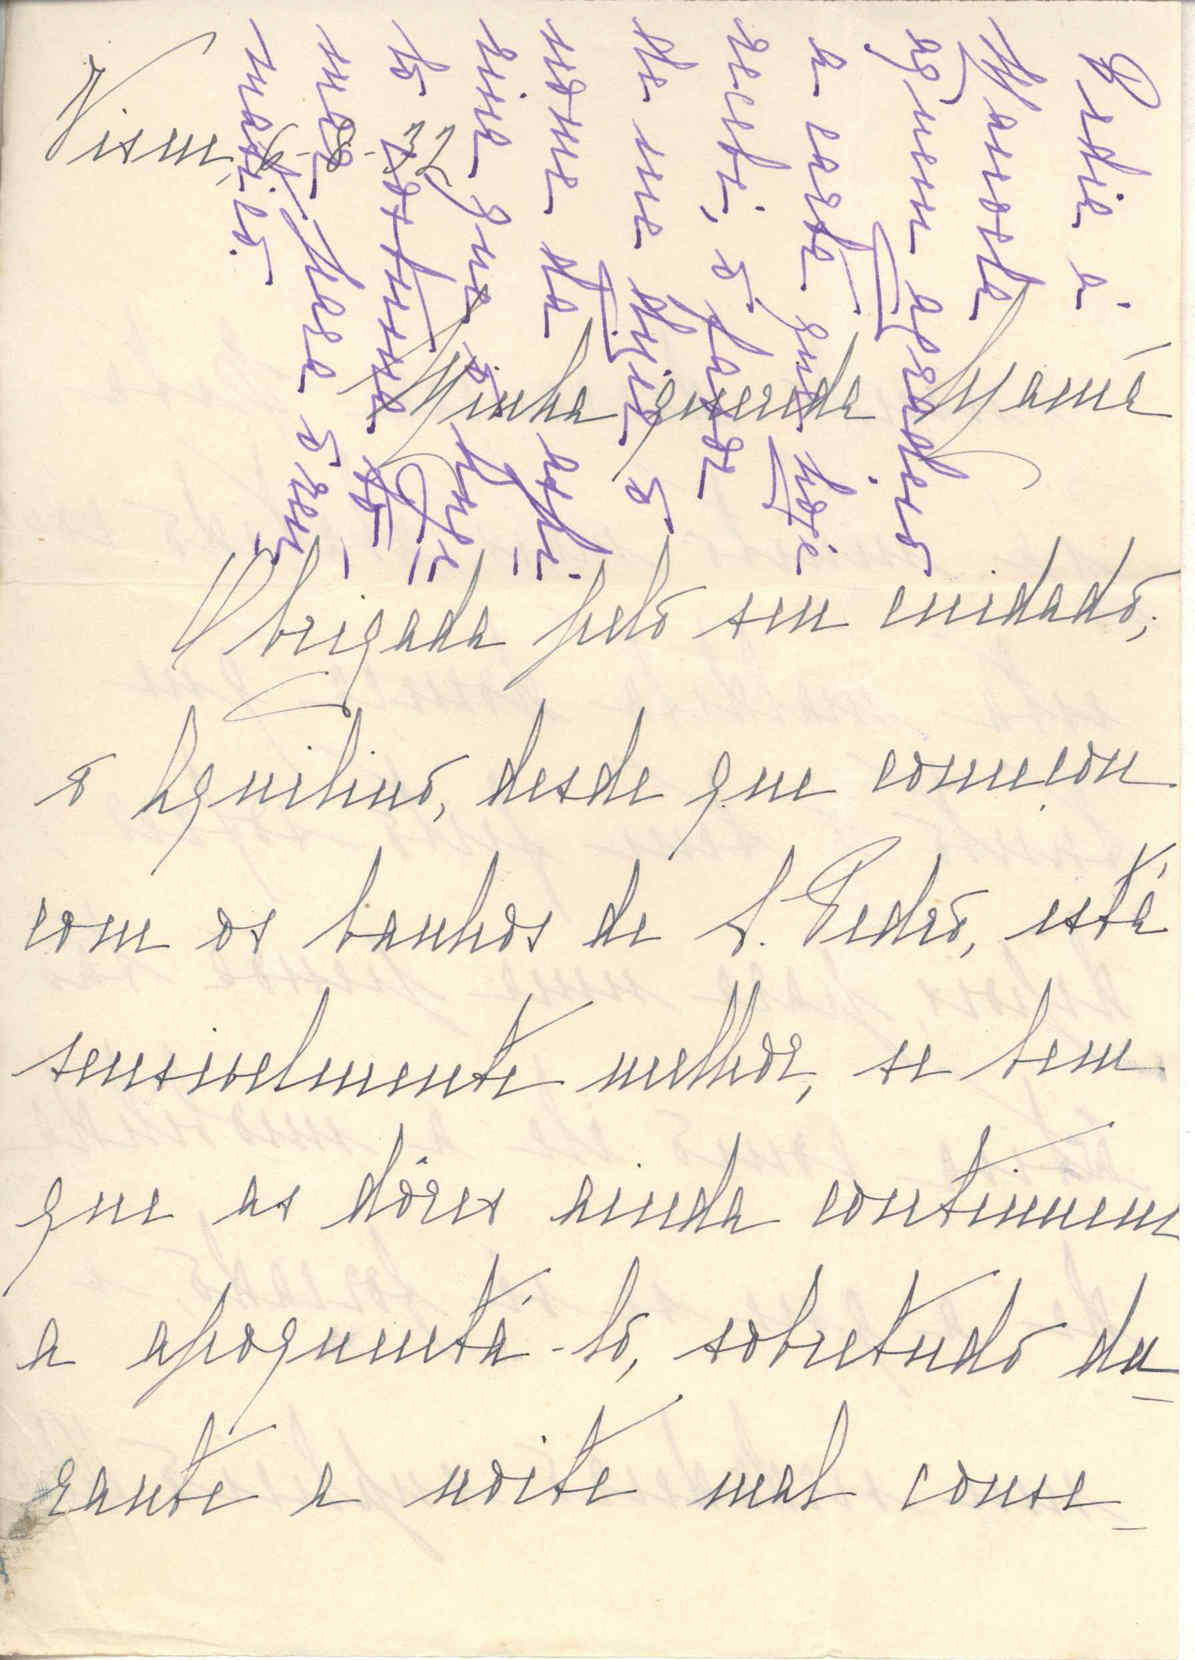 Viseu, 6-8-32
Minha querida Mamã
Obrigada pelo seu cuidado;
o Aquilino, desde que começou
com os banhos de S. Pedro, está
sensivelmente melhor, se bem
que as dôres ainda continuem
a apoquentá-lo, sobretudo du-
rante a noite mal conse-
Pedia á
Manoela
aquem agradeço
a carta que hoje
recebi, o favor
de me dizer o
nome da aspi-
rina que o
to costuma to-
mar para o reu-
matico.